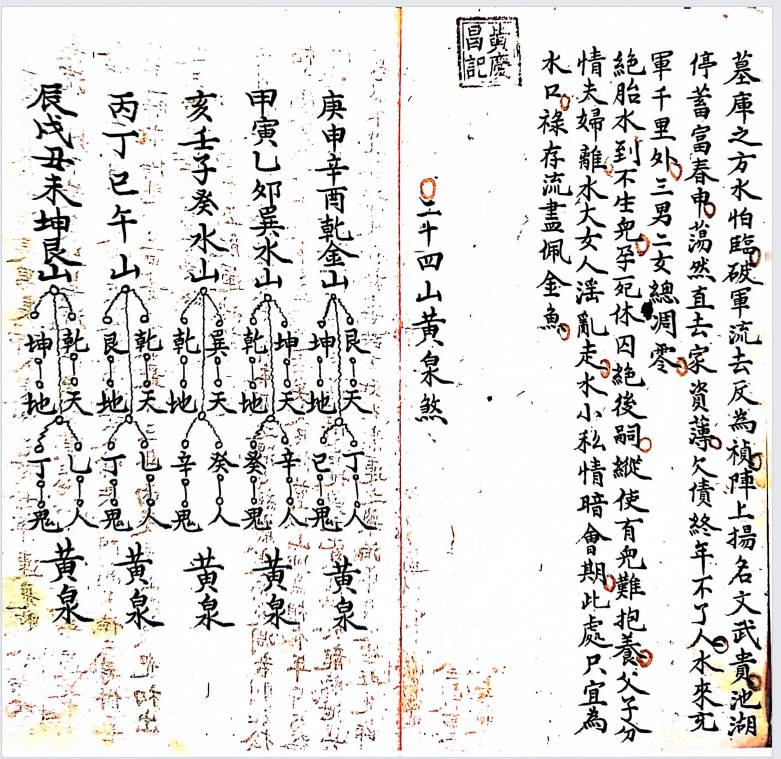 墓庫之方水怕臨破軍流去反為禎陣上揚名文武貴池湖
停蓄富春申蕩然直去家資薄欠債終年不了人水來充
軍千里外三男二女總凋零
絕胎水到不生兒孕死休囚絕後嗣縱使有兒難抱養父子分
情夫婦離水大女人淫亂走水小私情暗會期此處只宜為
水口祿存流盡佩金魚
黃慶
昌記
二十四山黃泉煞
庚申辛酉乾金山
艮天
坤地
丁人
己鬼
黃泉
甲寅乙卯巽水山
坤天
乾地
辛人
癸鬼
黃泉
亥壬子癸水山
巽天
乾地
癸人
辛鬼
黃泉
丙丁巳午山
乾天
艮地
乙人
丁鬼
黃泉
辰戌丑未坤艮山
乾天
坤地
乙人
丁鬼
黃泉